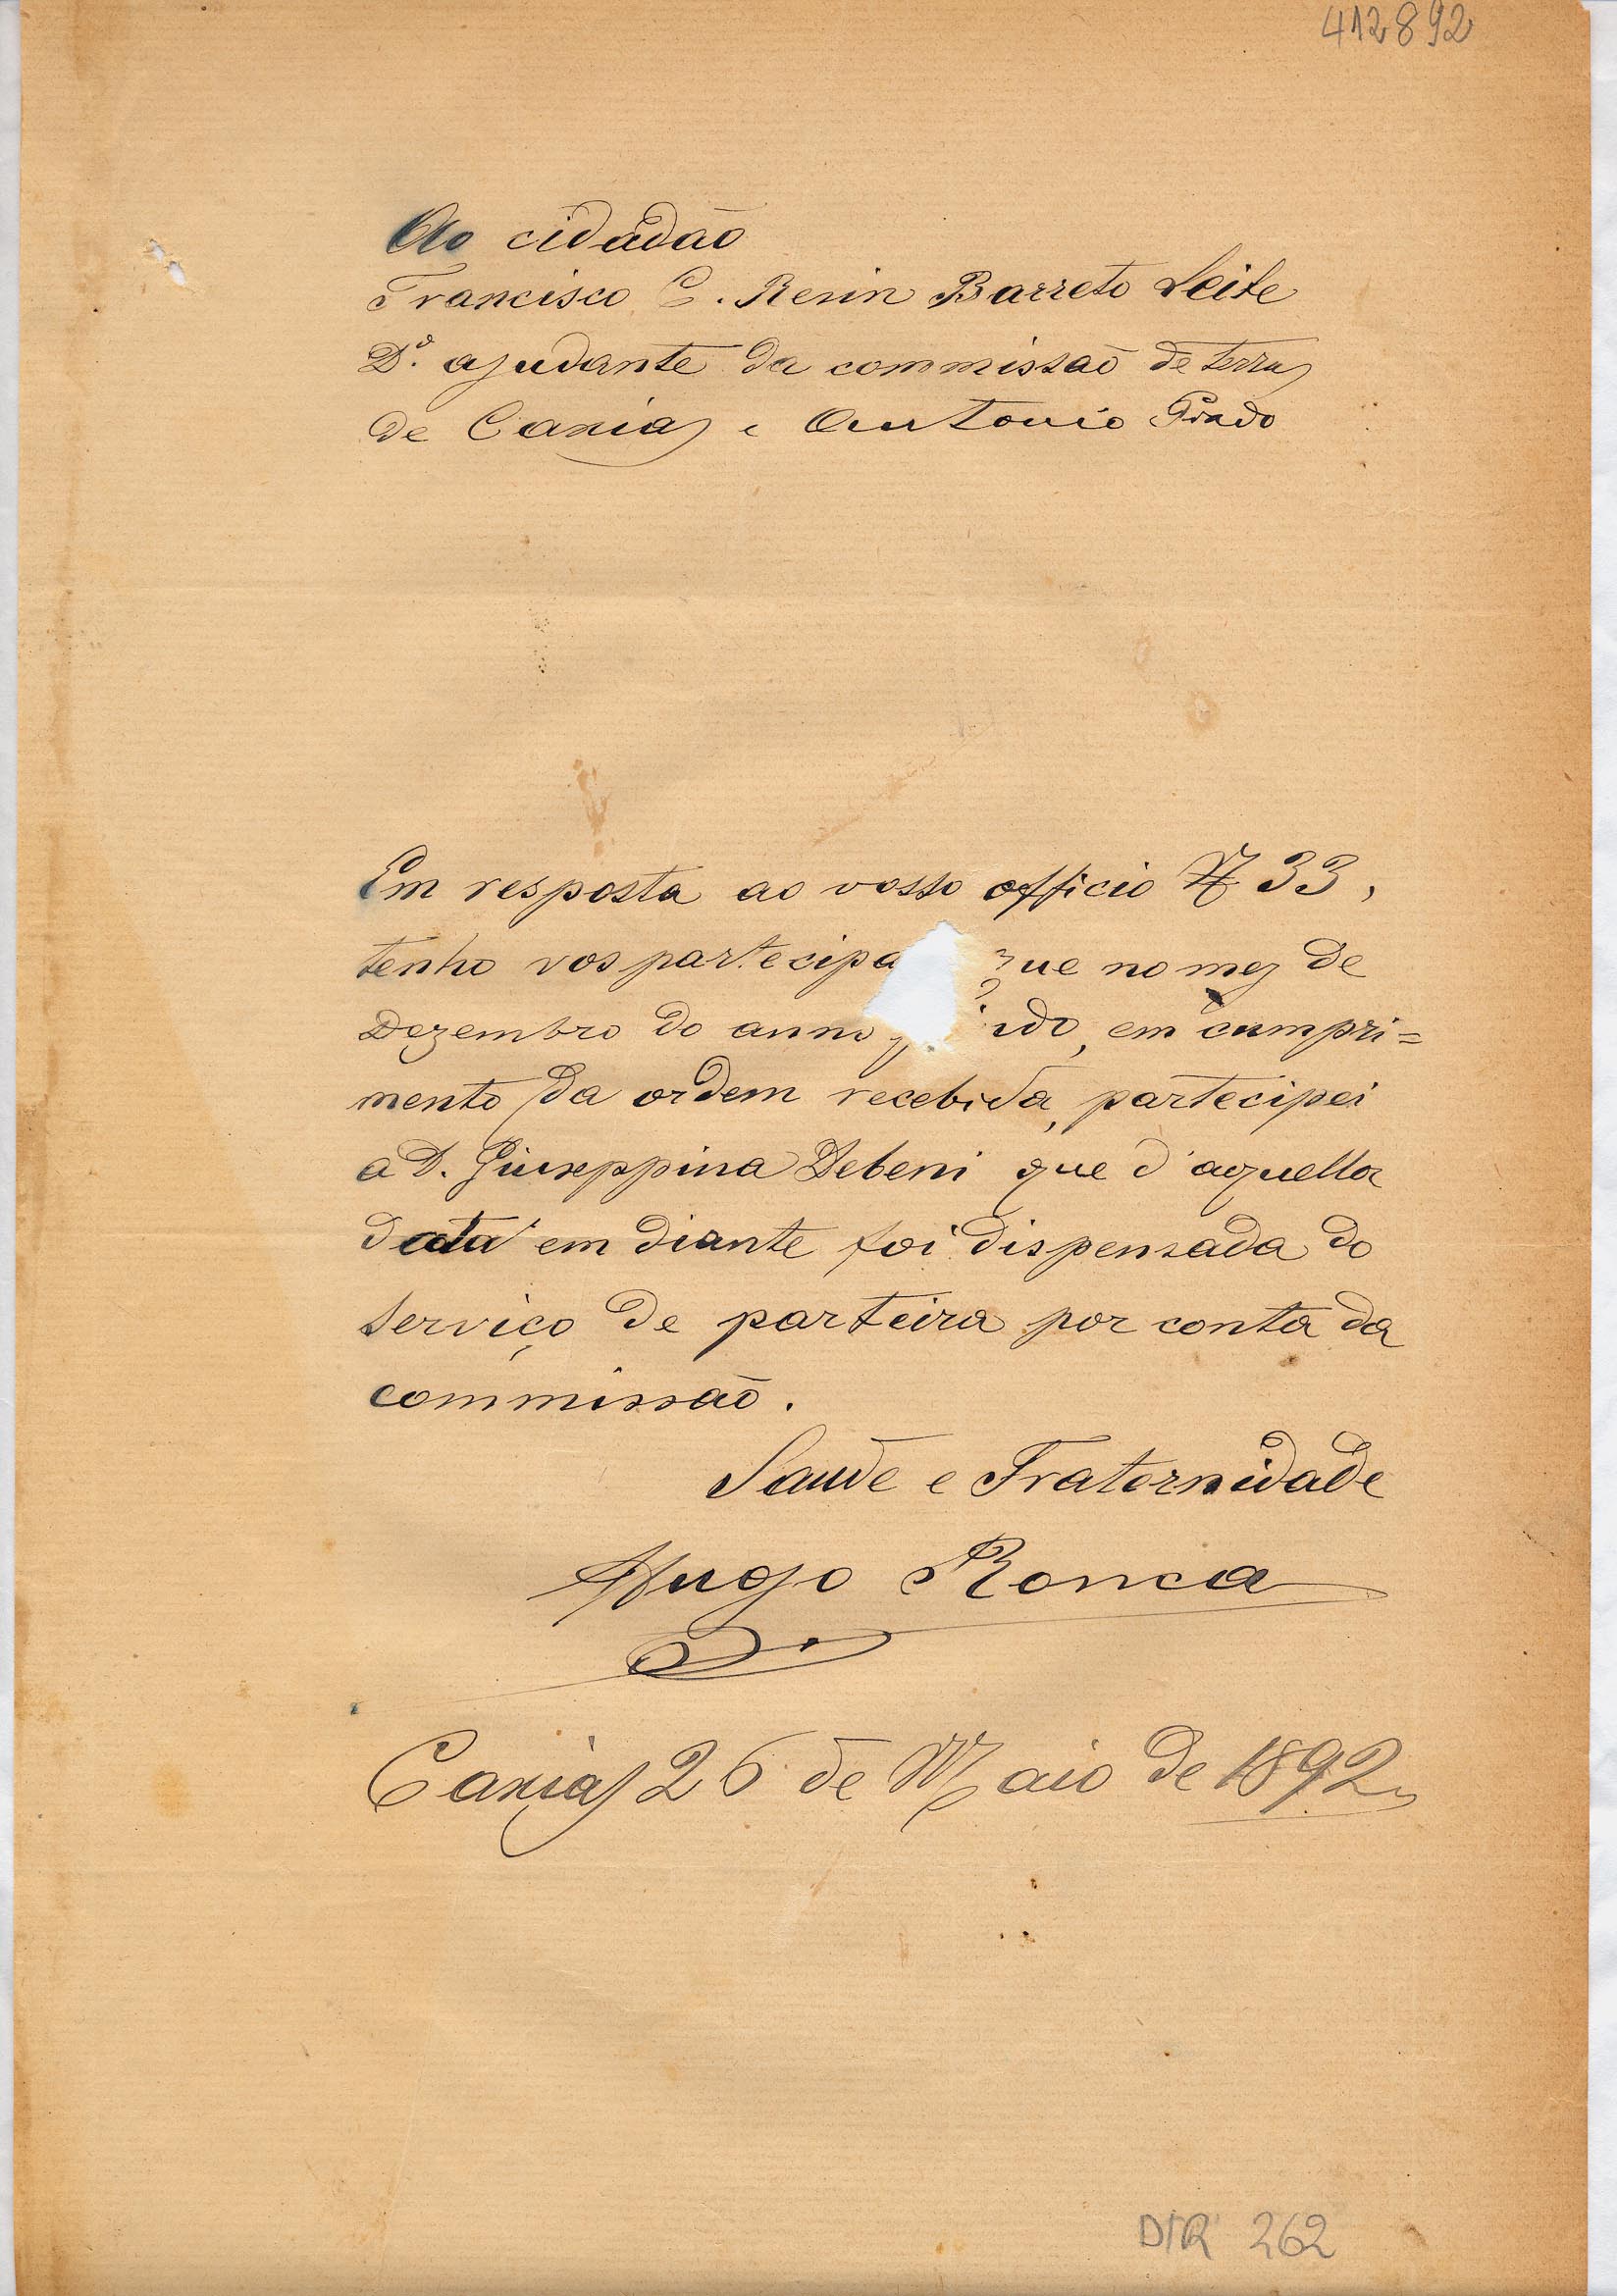 412892
Ao cidadão
Francisco C. Resin Barreto Leite
D.º ajudante da commissão de terras
de Caxias e Antonio Prado
Em resposta ao vosso officio N 33,
tenho vos partecipa que no mez de
Dezembro do anno, em cumpri=
mento da ordem recebida, partecipei
a D. Giuseppina Debeni que d'aquella
data em diante foi dispensada do
serviço de parteira por conta da
commissão.
Saude e Fraternidade
Hugo Ronca
Caxias 26 de Maio de 1892
DIR 262